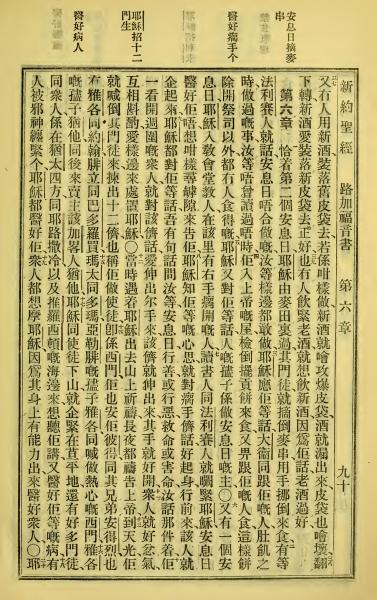 新約聖經 路加福音書 第六章 九十
安息日摘麥串
醫好癟手个
耶穌招十二門生
醫好病人
又冇人用新酒裝落舊皮袋去若係咁樣做新酒就噲攻爆皮袋酒就漏出來皮袋也噲壞翻
下轉新酒愛裝落新皮袋去正好也冇人飲緊老酒就想飲新酒因爲佢話老酒過好
第六章 恰着第二個安息日耶穌由麥田裏過其門徒就摘倒麥串用手挪倒來食有等
法利賽人就話安息日唔合做嘅汝等樣邊都敢做耶穌應佢等話大衛同跟佢嘅人肚飢之
時做過嘅事汝等唔曾讀過唔時佢入上帝嘅屋檢倒擺貢餅來食又畀跟佢嘅人食這樣餅
除開祭司以外都冇人食得嘅耶穌又對佢等話人嘅孻子係做安息日嘅主〇又有一個安
息日耶穌入敎會堂敎人在該里有右手癟開嘅人讀書人同法利賽人就緊耶穌安息日
醫好佢唔想咁樣尋罅隙來吿佢耶穌知佢等嘅心思就對癟手儕話好起身行前來該人就
企起來耶穌就對佢等話吾有句話問汝等安息日行善或行惡救命或害命汝話那件着佢
一看開週圍嘅衆人就對該儕話愛伸出尔手來該儕就伸出來其手就好開衆人就好忿氣
互相斟酌愛樣邊來處置耶穌〇當時遇着耶穌出去山上祈禱長夜都禱吿上帝到天光佢
就喊倒其門徒來揀出十二儕也稱佢做使徒卽係西門佢也安佢彼得同其兄弟安得烈也
有雅各同約翰腓立同巴多羅買瑪太同多瑪亞勒腓嘅孻子雅各同喊做熱心嘅西門雅各
嘅孻子猶他同後來賣主該加畧人猶他耶穌同使徒下山就企緊在草平地還有好多門徒
同衆人係在猶太四方同耶路撒冷以及推羅西頓嘅海邊來想聽佢講又醫好佢等嘅病有
人被邪神纒緊个耶穌都醫好佢衆人都想摩耶穌因爲其身上有能力出來醫好衆人〇耶